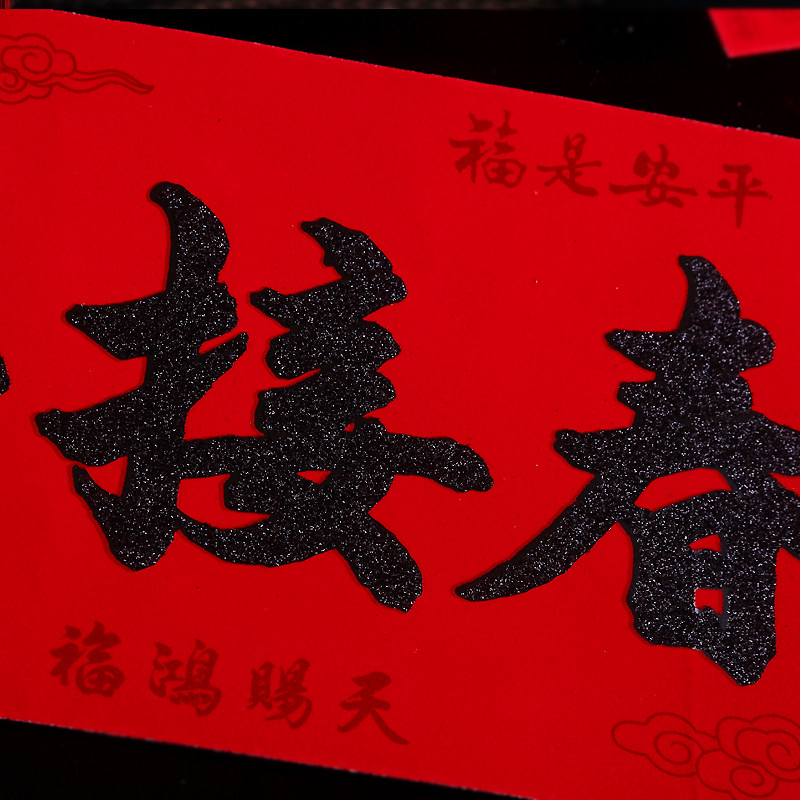 平安是福
春接
天賜鴻福